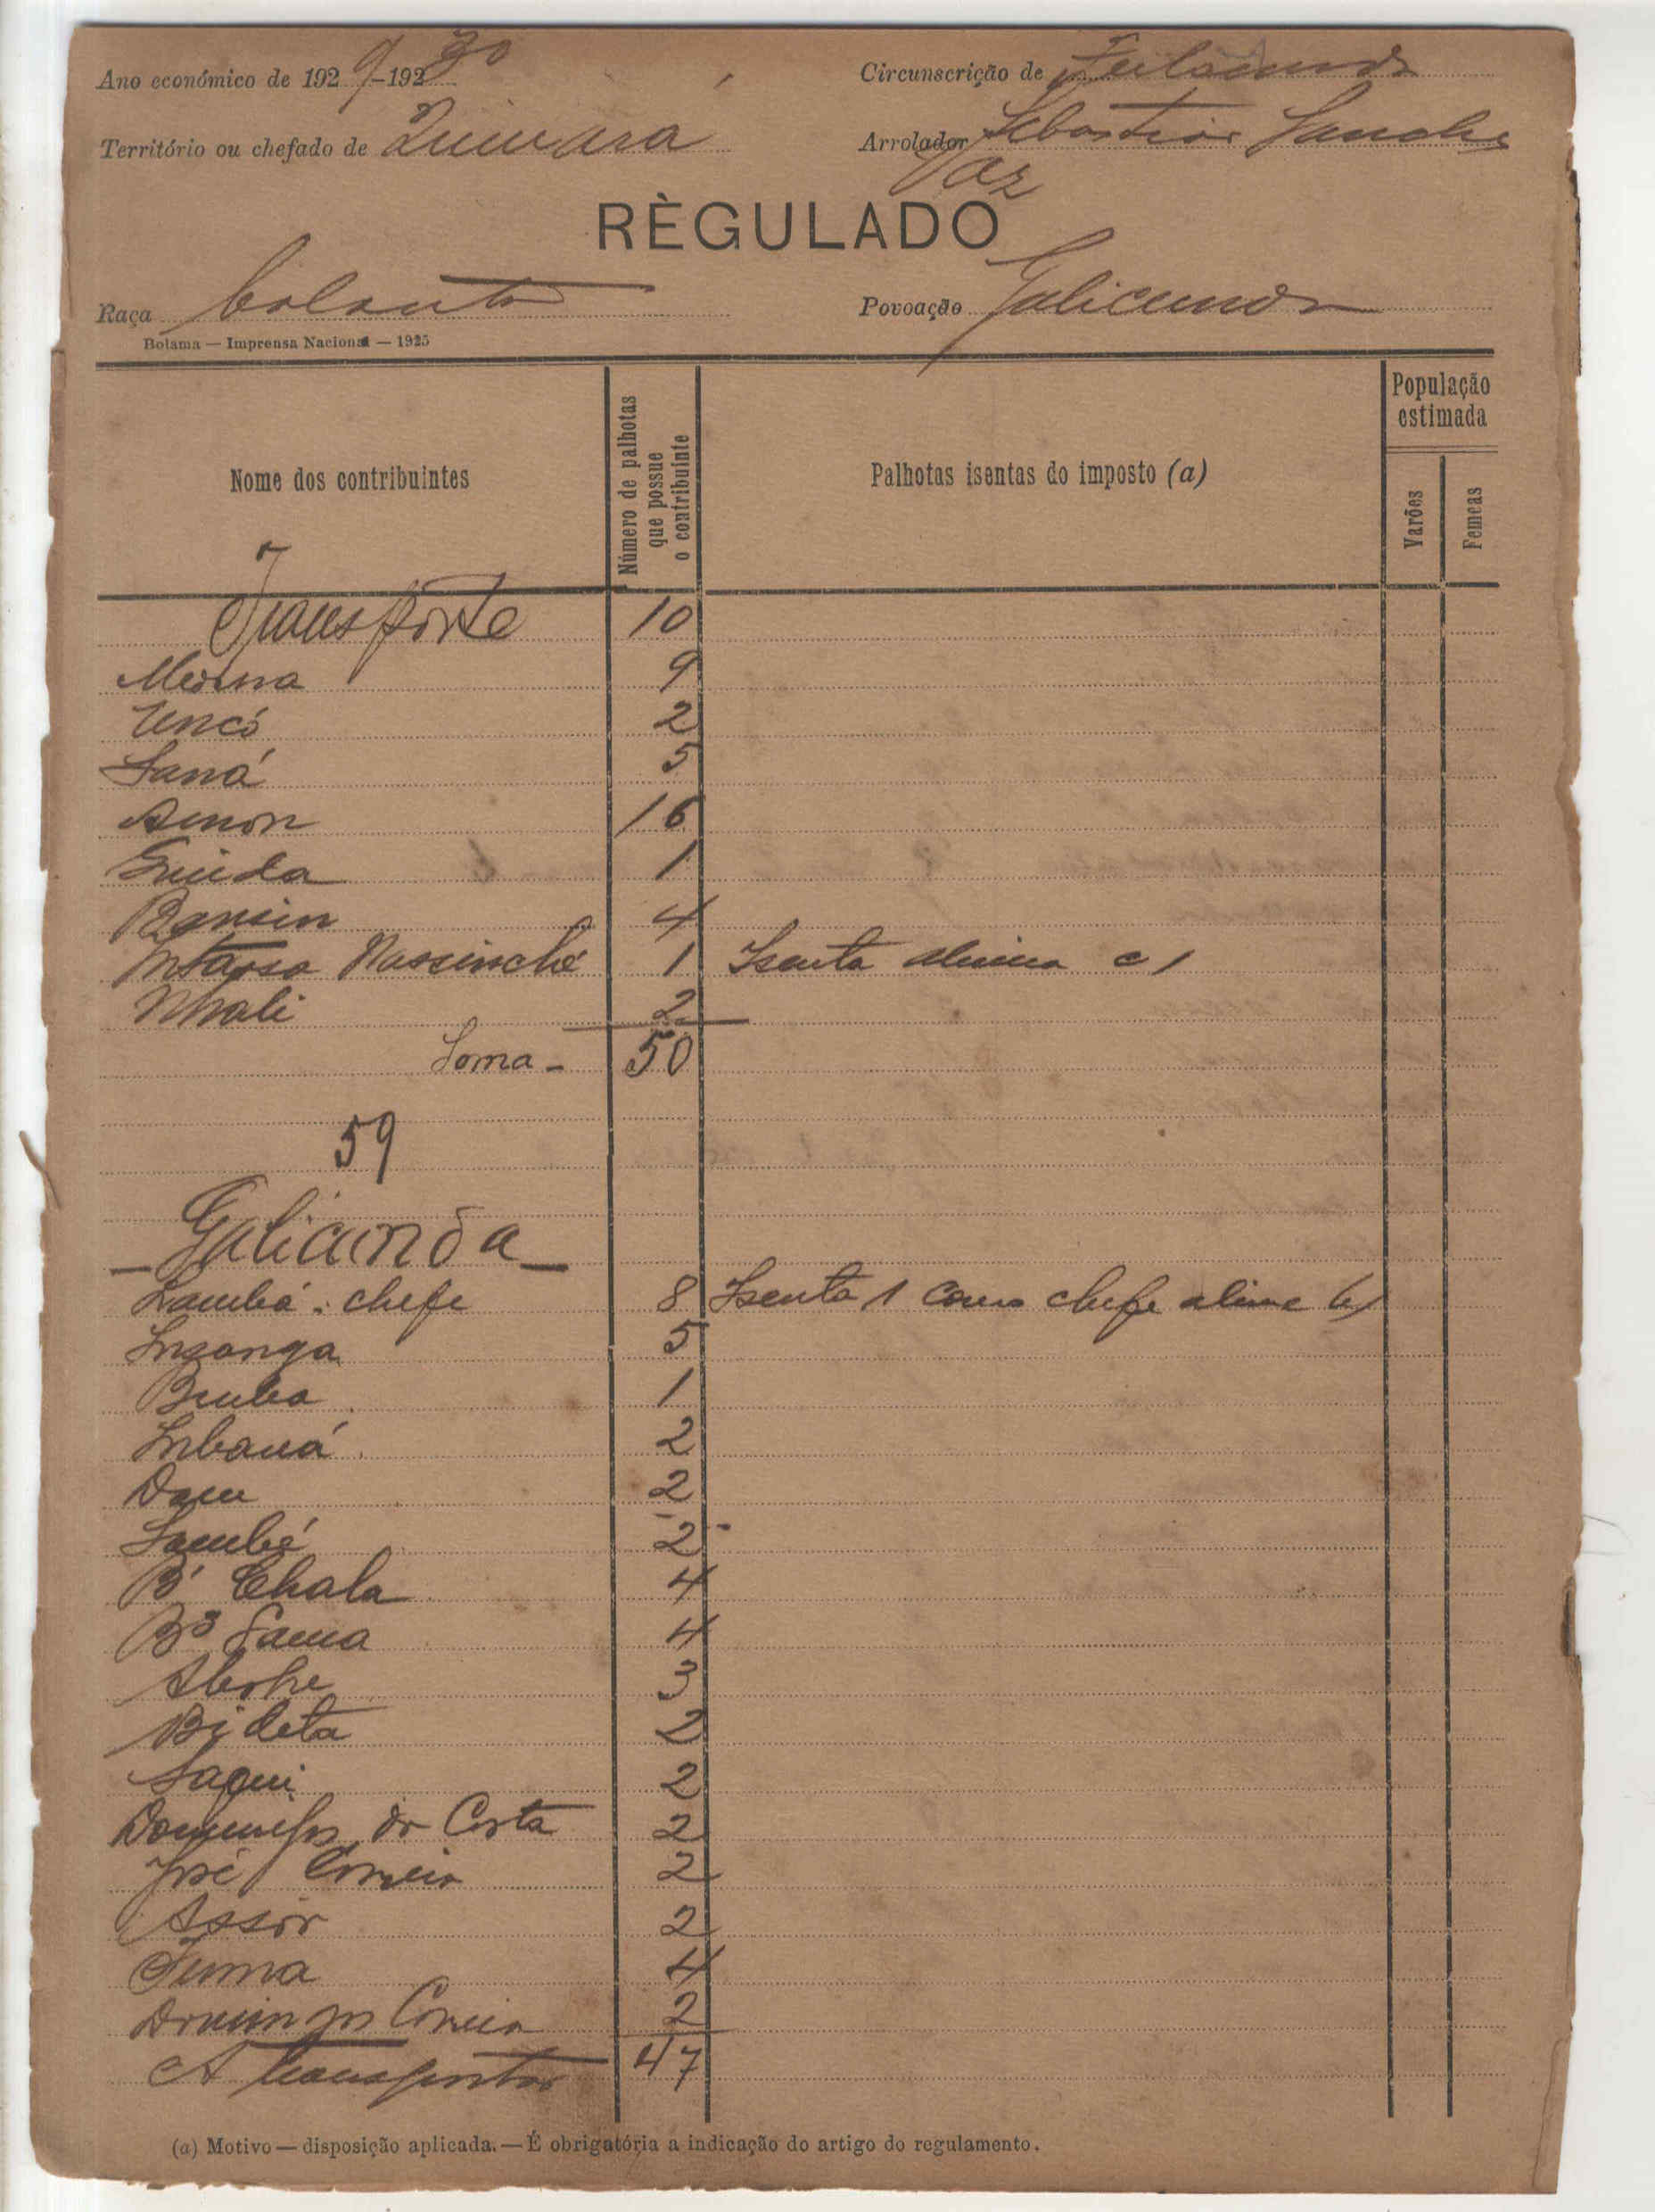 Ano económico de 1929-1930
Circunscrição de
Território ou chefado de Quinara
Arrolador Sebastião Sanches
Vaz
RÈGULADO
Raça balanta
Povoação Galicunda
Bolama — Imprensa Nacional — 1925
Nome dos contribuintes
Número de palhotas que possue o contribuinte
Palhotas isentas do imposto (a)
População estimada
Varões
Femeas
Transporte 10
9
Uncó 2
Saná 5
16
1
4
Nassinché 1 Isenta alinea c)
Nhali 2
Soma - 50
59
Galicunda
Lambá chefe 8 Isenta 1 como chefe alinea b)
Insonga 5
1
Inbaná 2
2
2
B' Chala 4
4
3
Bideta 2
Saqui 2
Domingos da Costa 2
José Correia 2
2
4
Domingos Correia 2
A transportar 47
(a) Motivo — disposição aplicada. — É obrigatória a indicação do artigo do regulamento.